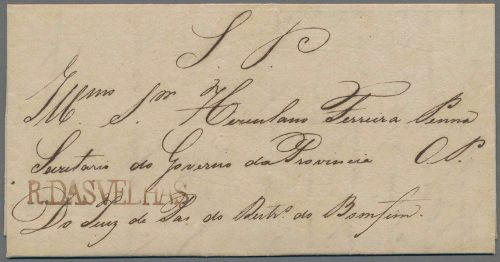 S. P.
Illmo Snr Herculano Ferreira Penna
Secretario do Governo da Provincia O. P.
R. DAS VELHAS
Do Juiz de Paz do do Bomfim.